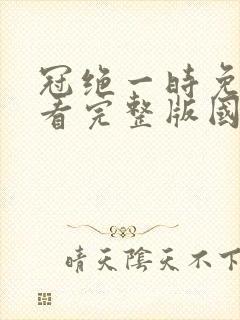 冠绝一時免
看完整版國
晴天陰天不下